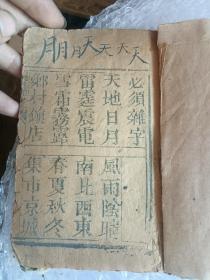 朋月天天大天
必須雜字
天地日月 風雨陰晴
雷霆震電 南北西東
雪霜霧露 春夏秋冬
鄉村鎮店 集市京城